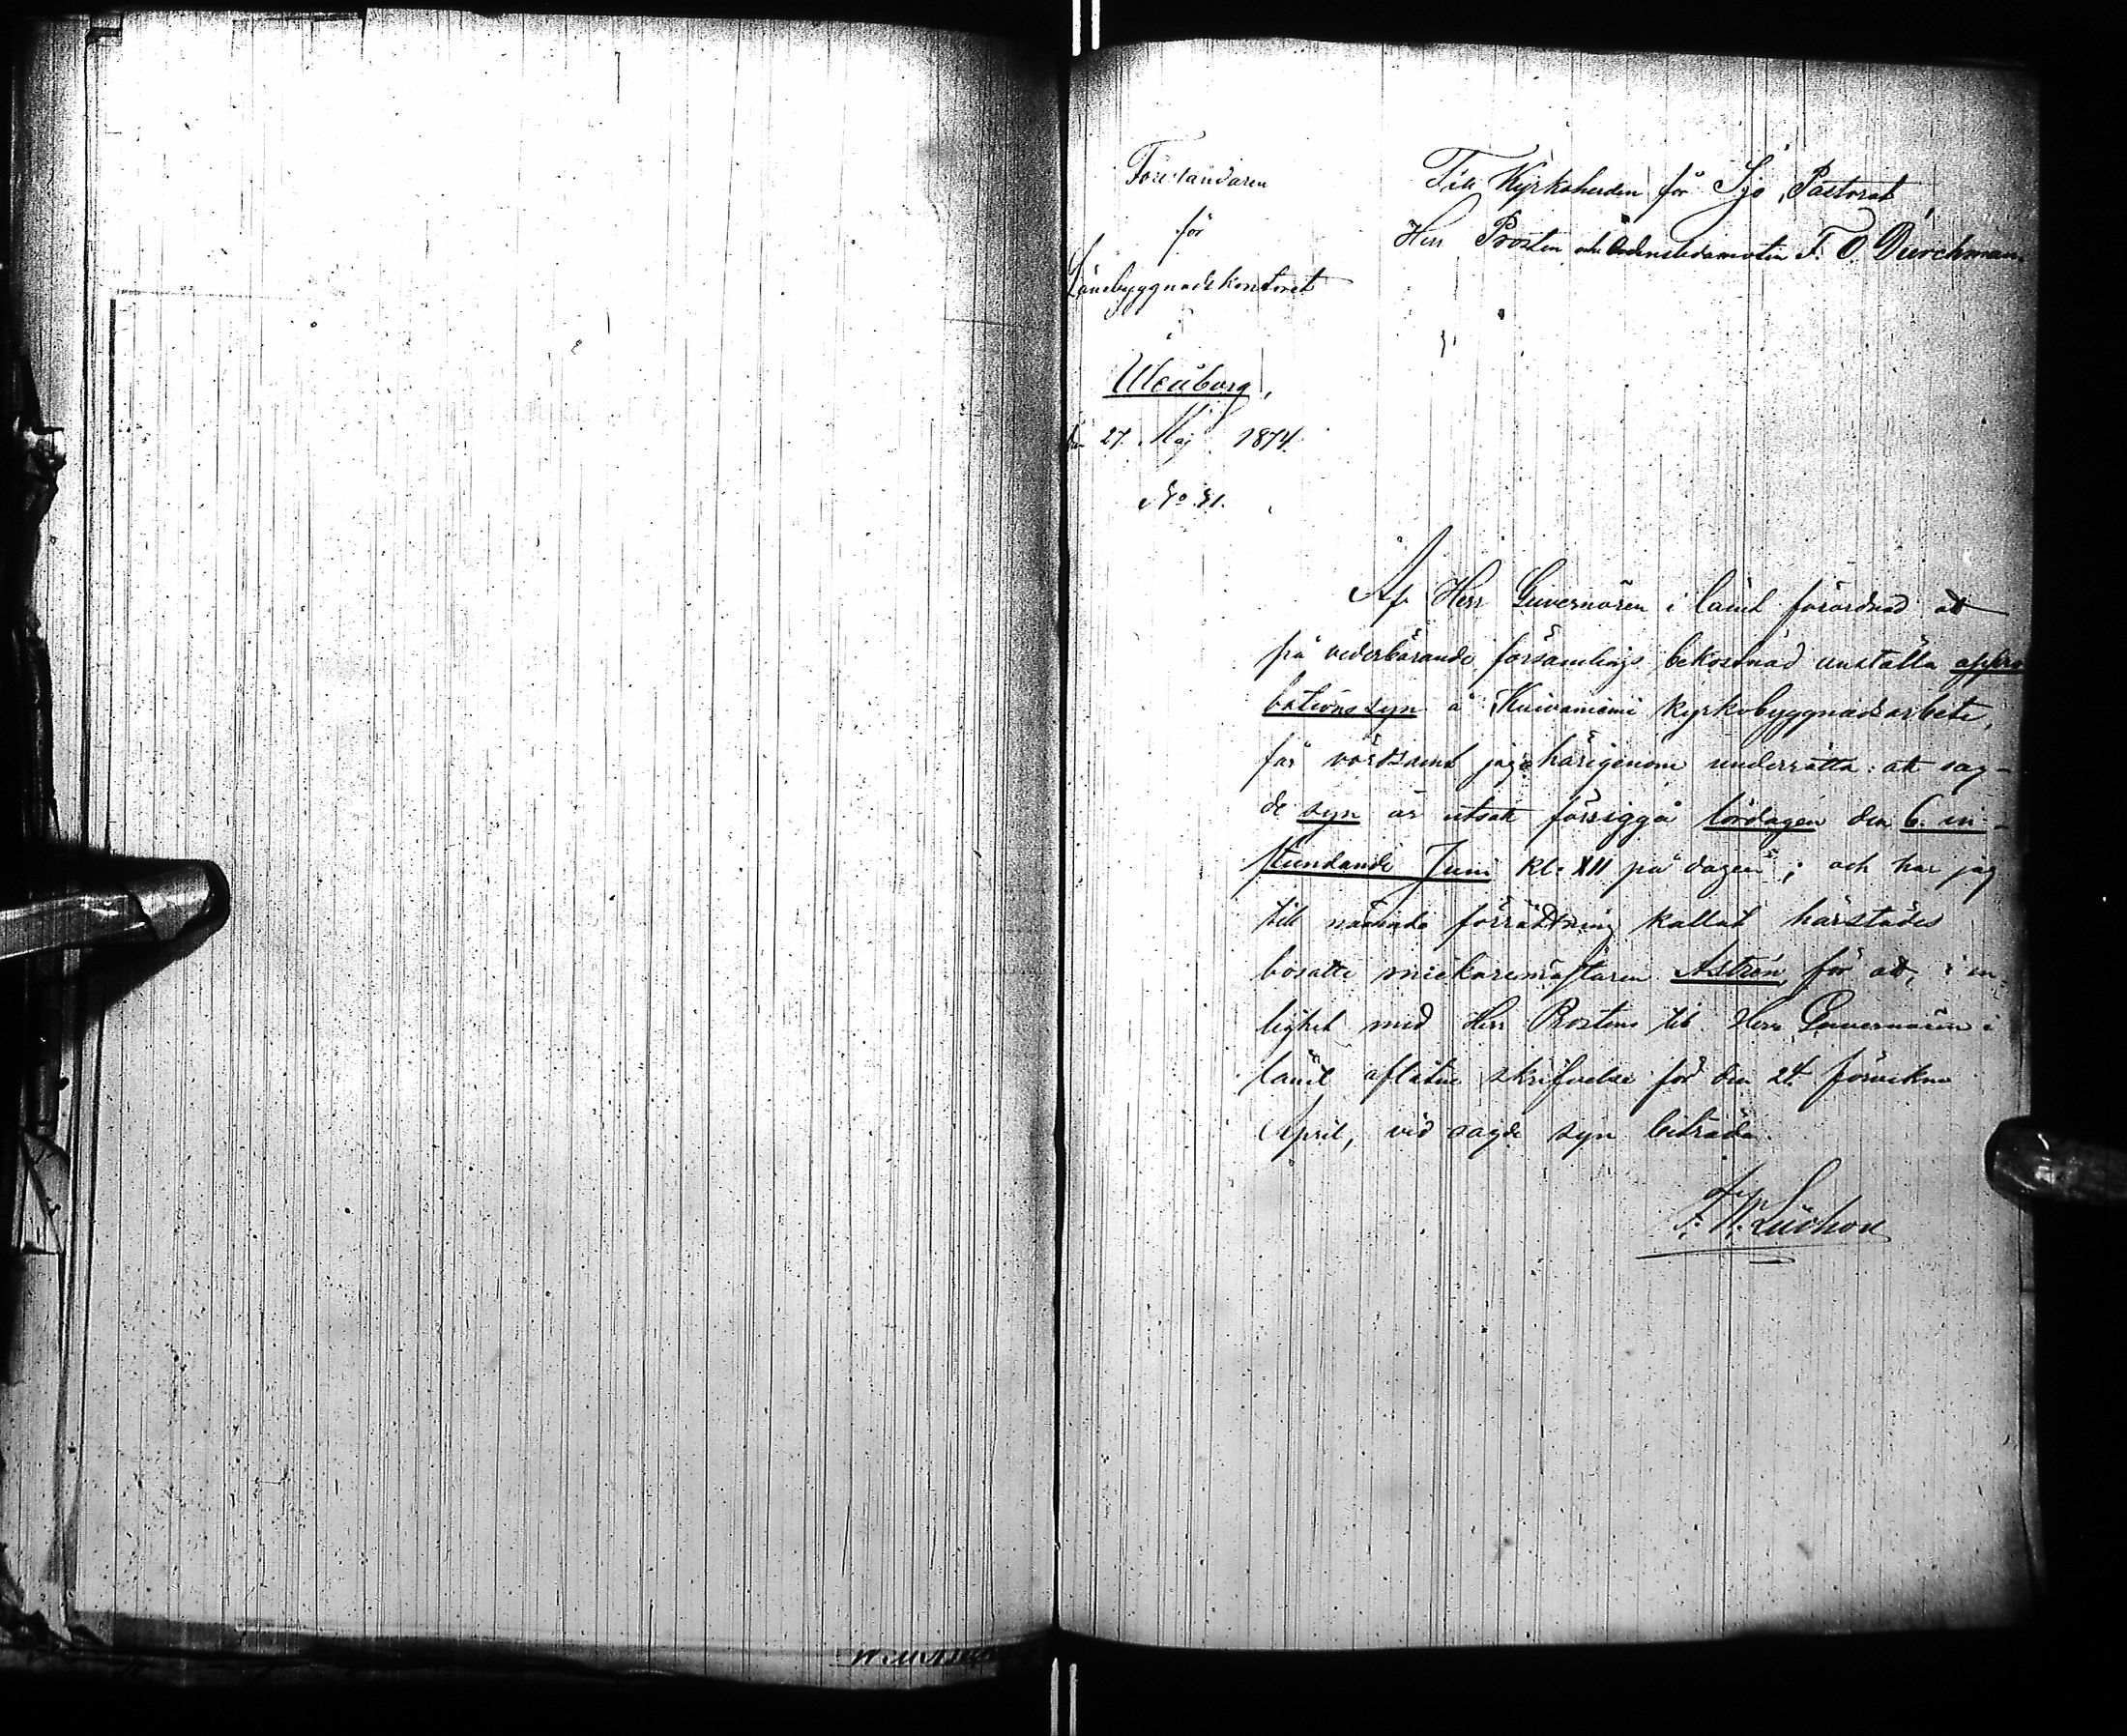 Föreståndaren
för
Länebyggnadskontoret
i
Uleåborg,
den 27. Maj 1874.
No. 41.
Till Kyrkoherden för Ijo Pastorat
Herr Prosten och Ordensledamoten F. O. Durchman.
Af Herr Guvernören i länet förordnad att
på vederbörande församlings bekostnad anställa appro
bationssyn å Kuivaniemi kyrkobyggnadsarbete,
får vördsamt jag härigenom underrätta: att sag-
de syn är utsatt försiggå lördagen den 6. in-
stundande Juni kl. XII på dagen; och har jag
till nämnda förrättning kallat härstädes
bosatte snickaremästaren Astrén, för att, i en
lighet med Herr Prostens till Herr Guvernören i
länet aflåtne skrifvelse för den 24. förvekne
April, vid sagde syn biträda.